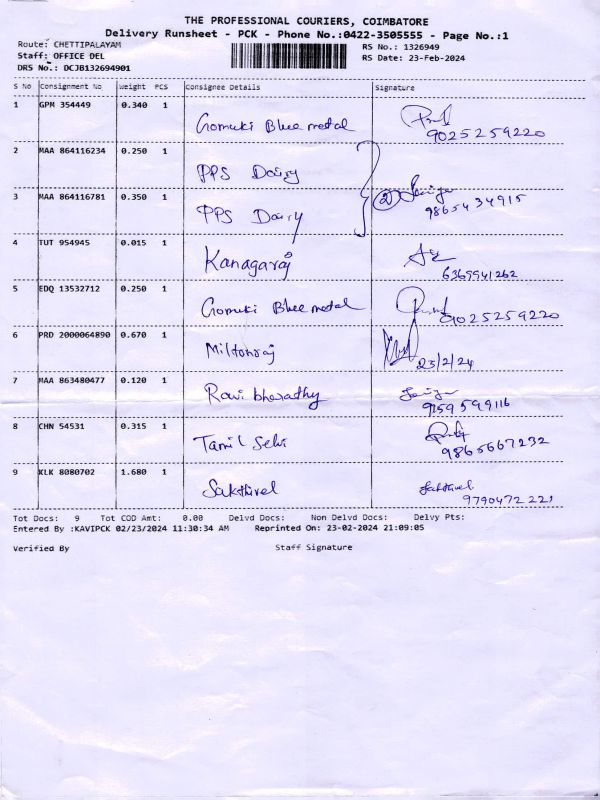 THE PROFESSIONAL COURIERS, COIMBATORE
Delivery Runsheet - PCK - Phone No.:0422-3505555 - Page No.:1
Route: CHETTIPALAYAM RS No.: 1326949
Staff: OFFICE DEL RS Date: 23-Feb-2024
DRS No.: DCJB132694901
S No Consignment No Weight PCS Consignee Details Signature
1 GPM 354449 0.340 1 Gomuki Blue metal 9025259220
2 MAA 864116234 0.250 1 PPS Dairy
3 MAA 864116781 0.350 1 PPS Dairy (2) 9865434915
4 TUT 954945 0.015 1 Kanagaraj 6369941262
5 EDQ 13532712 0.250 1 Gomuki Blue metal 9025259220
6 PRD 2000064890 0.670 1 Miltonraj 23/2/24
7 MAA 863480477 0.120 1 Ravi bharathy 9159599116
8 CHN 54531 0.315 1 Tamil Selvi 9865667232
9 KLK 8080702 1.680 1 Sakthivel Sakthivel 9790472221
Tot Docs: 9 Tot COD Amt: 0.00 Delvd Docs: Non Delvd Docs: Delvy Pts:
Entered By :KAVIPCK 02/23/2024 11:30:34 AM Reprinted On: 23-02-2024 21:09:05
Verified By Staff Signature